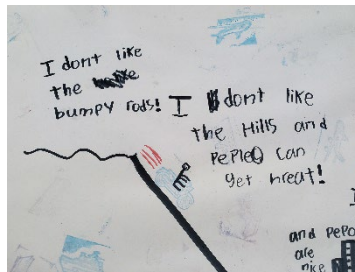 I dont like
the
bumpy rods!
I dont like
the Hills and
PePleQ can
get hreat!
and PePo
are
nice